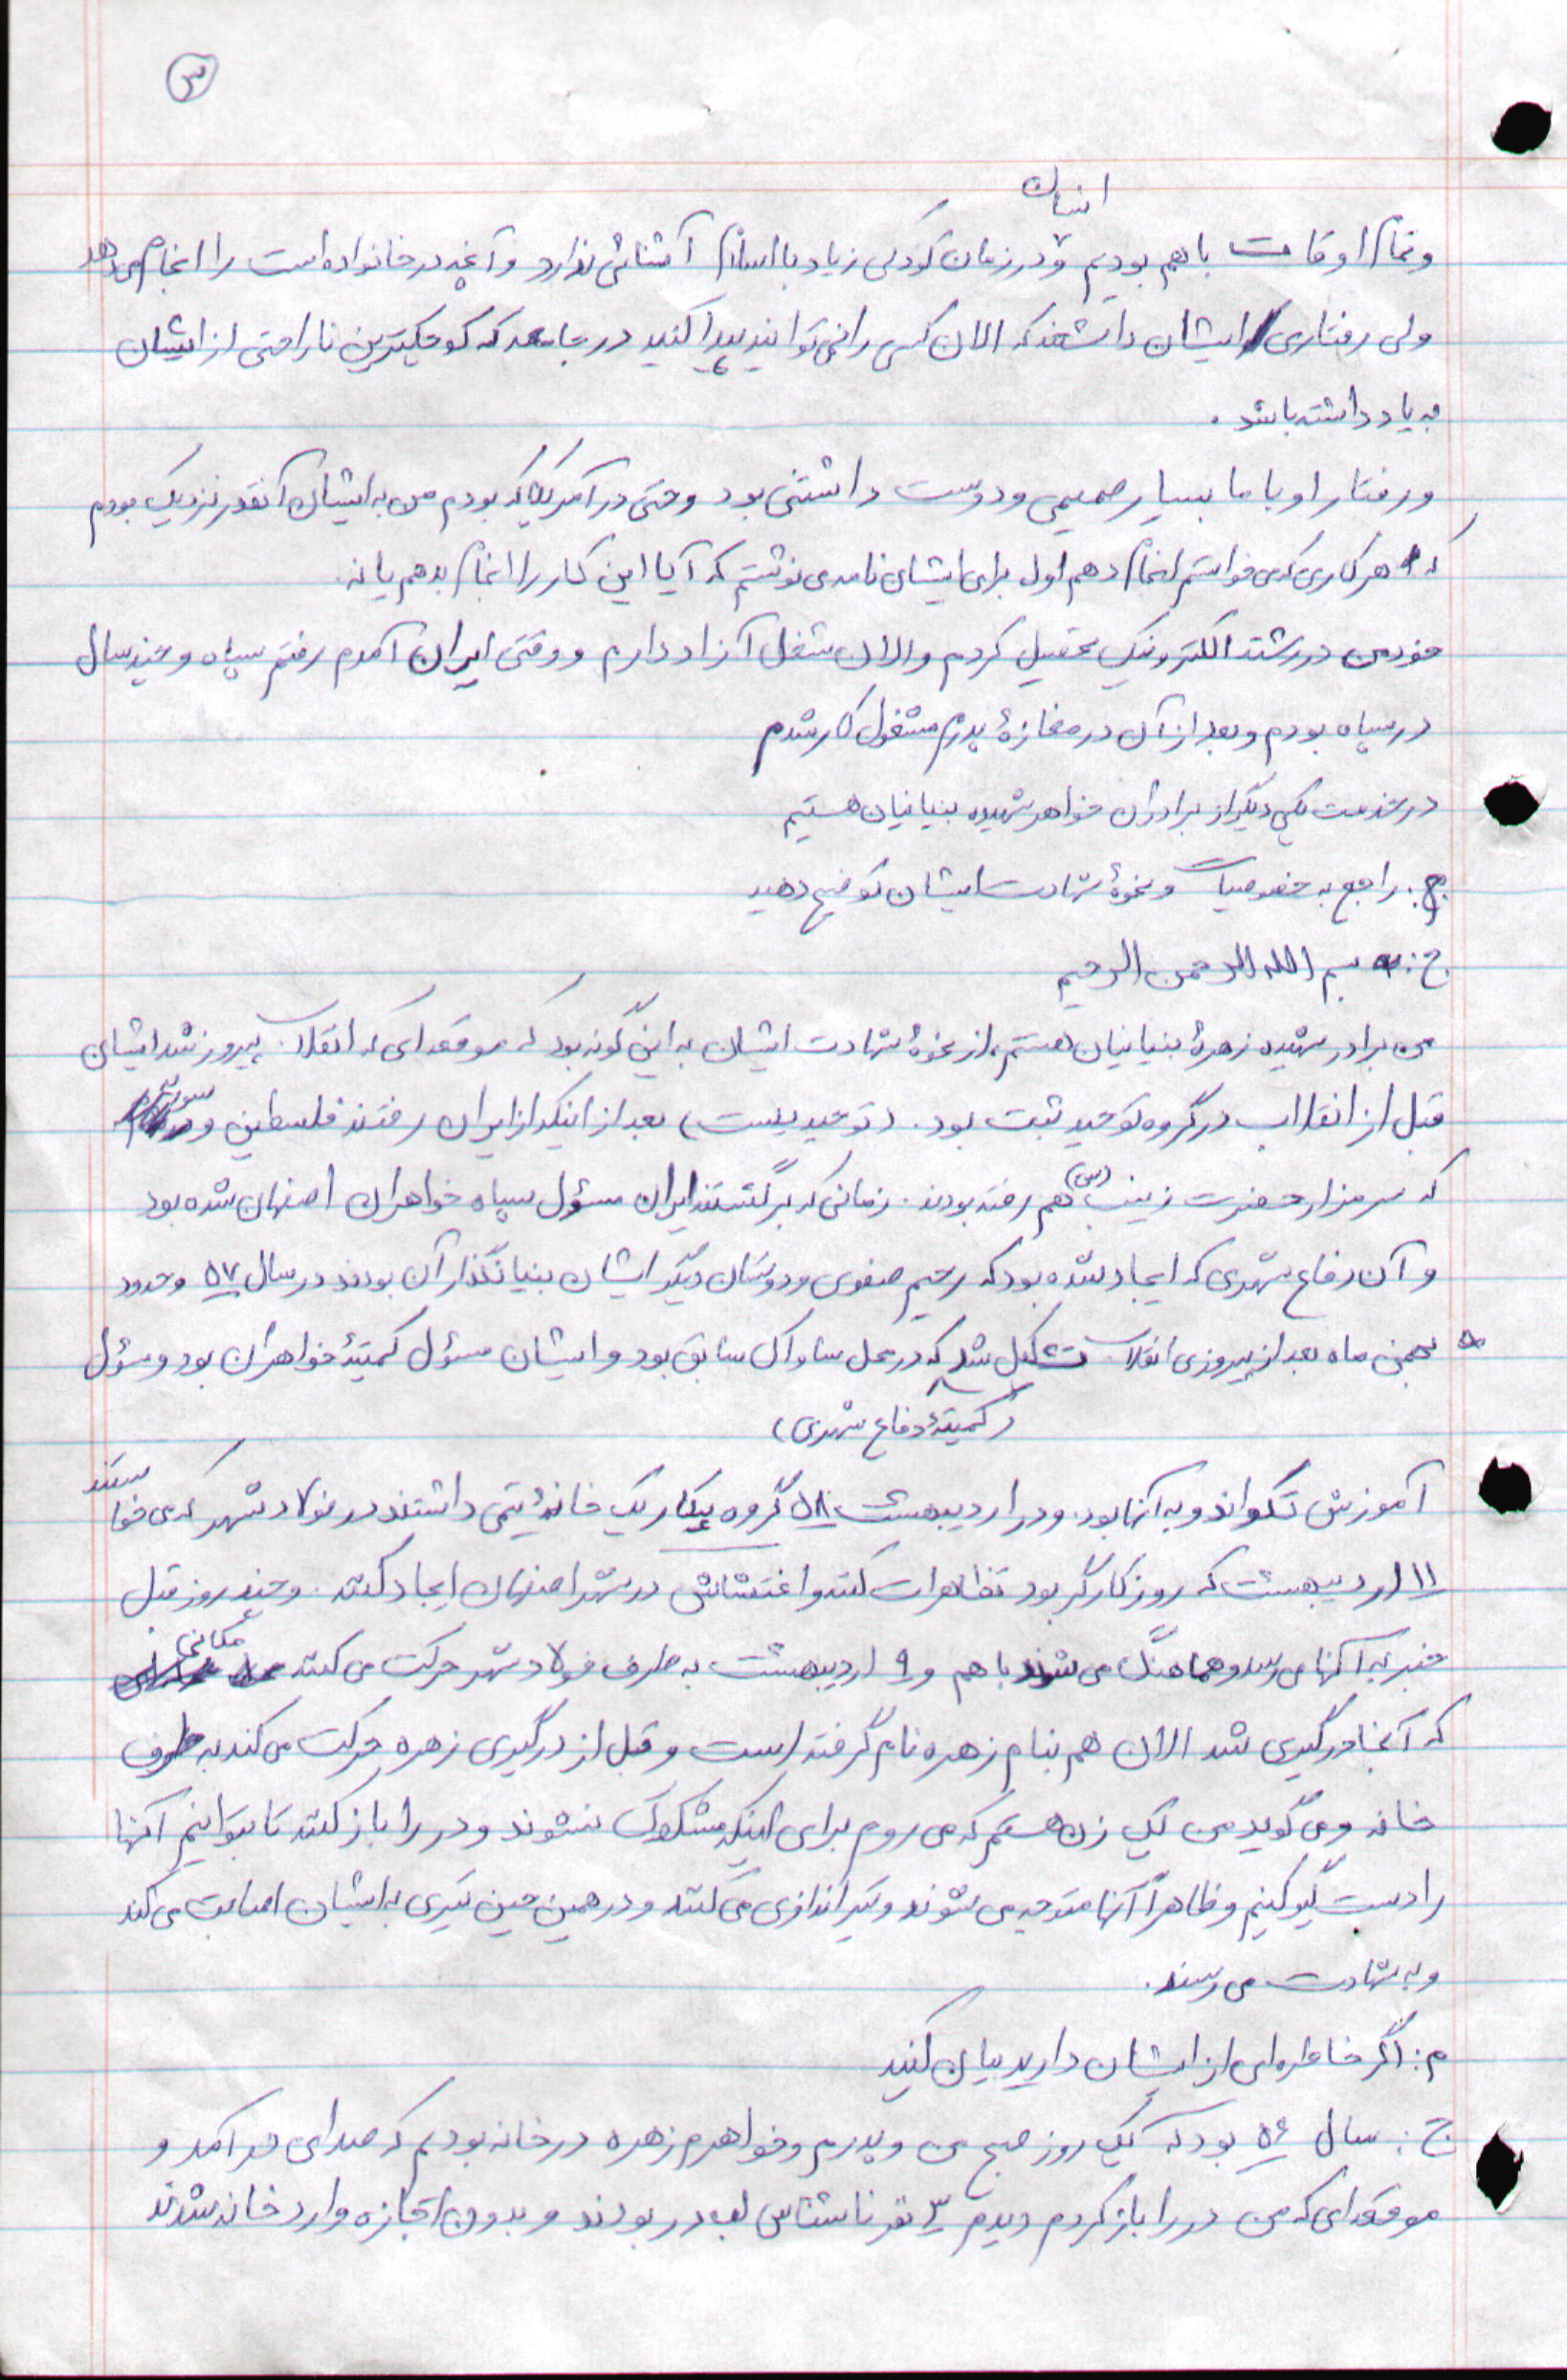 ۳
انسان
و تمام اوقات با هم بودیم و در زمان کودکی زیاد با اسلام آشنائی ندارد و آنچه در خانواده است را انجام می دهد
ولی رفتاری ایشان داشتند که الان کسی را نمی توانید پیدا کنید در جامعه که کوچکترین ناراحتی از ایشان
به یاد داشته باشد .
و رفتار او با ما بسیار صمیمی و دوست داشتنی بود و حتی در آمریکا که بودم من به ایشان آنقدر نزدیک بودم
که هر کاری که می خواستم انجام دهم اول برای ایشان نامه می نوشتم که آیا این کار را انجام بدهم یا نه .
خود من در رشته الکترونیک تحصیل کردم و الان شغل آزاد دارم و وقتی ایران آمدم رفتم سپاه و چند سال
در سپاه بودم و بعد از آن در مغازهٔ پدرم مشغول کار شدم
در خدمت یکی دیگر از برادران خواهر شهیده بنیانیان هستیم
م : راجع به خصوصیات و نحوهٔ شهادت ایشان توضیح دهید
ج : بسم الله الرحمن الرحیم
من برادر شهیده زهرهٔ بنیانیان هستم، از نحوهٔ شهادت ایشان به این گونه بود که موقعه ای که انقلاب پیروز شد ایشان
قبل از انقلاب در گروه توحید ثبت بود . (توحیدیست) بعد از اینکه از ایران رفتند فلسطین و سوریه
که سر مزار حضرت زینب (س) هم رفته بودند . زمانی که برگشتند ایران مسؤل سپاه خواهران اصفهان شده بود
و آن دفاع شهری که ایجاد شده بود که رحیم صفوی و دوستان دیگر ایشان بنیانگذار آن بودند در سال ۵۷ و حدود
۵ بهمن ماه بعد از پیروزی انقلاب تشکیل شد که در محل ساواک سابق بود و ایشان مسؤل کمیتهٔ خواهران بود و مسؤل
(کمیتهٔ دفاع شهری)
آموزش تکواندو به آنها بود . و در اردیبهشت ۵۸ گروه پیکار یک خانهٔ تیمی داشتند در فولاد شهر که می خواستند
۱۱ اردیبهشت که روز کارگر بود تظاهرات کنند و اغتشاش در شهر اصفهان ایجاد کنند . و چند روز قبل
خبر به آنها می رسد و هماهنگ می شوند با هم و ۹ اردیبهشت به طرف فولاد شهر حرکت می کنند مکانی
که آنجا درگیری شد الان هم بنام زهره نام گرفته است و قبل از درگیری زهره حرکت می کند به طرف
خانه و می گوید من یک زن هستم که می روم برای اینکه مشکوک نشوند و در را باز کنند تا بتوانیم آنها
را دست گیر کنیم و ظاهراً آنها متوجه می شوند و تیراندازی می کنند و در همین حین تیری به ایشان اصابت می کند
و به شهادت می رسند .
م : اگر خاطره ای از ایشان دارید بیان کنید
ج : سال ۵۶ بود که یک روز صبح من و پدرم و خواهرم زهره در خانه بودیم که صدای در آمد و
موقعه ای که من در را باز کردم دیدم ۳ نفر ناشناس لب در بودند و بدون اجازه وارد خانه شدند